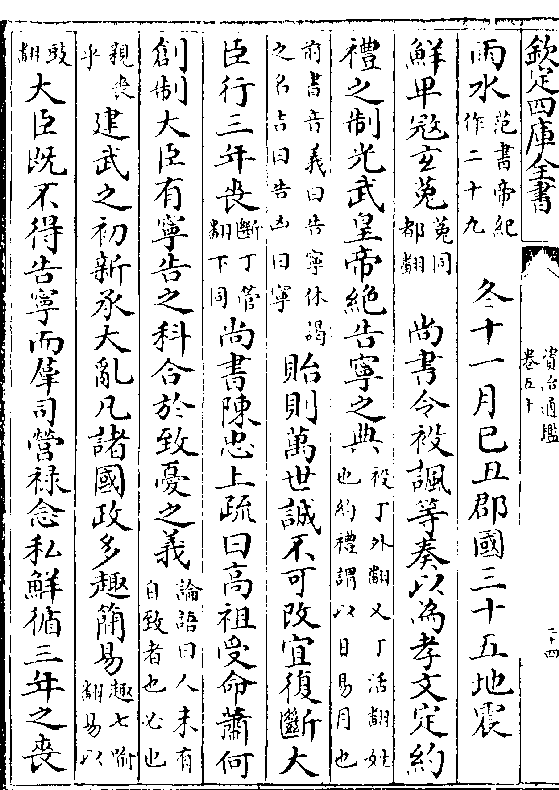 欽定四庫全書
資治通鑑
卷五十
二十四
雨水范書帝紀作二十九冬十一月己丑郡國三十五地震
鮮卑寇玄菟菟同都翻尚書令祋諷等奏以為孝文定約
禮之制光武皇帝絶告寧之典祋丁外翻又丁活翻姓也約禮謂以日易月也
前書音義曰告寧休謁之名吉曰告凶曰寧貽則萬世誠不可改宜復斷大
臣行三年喪斷丁管翻下同尚書陳忠上疏曰高祖受命蕭何
創制大臣有寧告之科合於致憂之義論語曰人未有自致者也必也
親喪乎建武之初新承大亂凡諸國政多趣簡易趣七喻翻易以
豉翻大臣既不得告寧而羣司營禄念私鮮循三年之喪